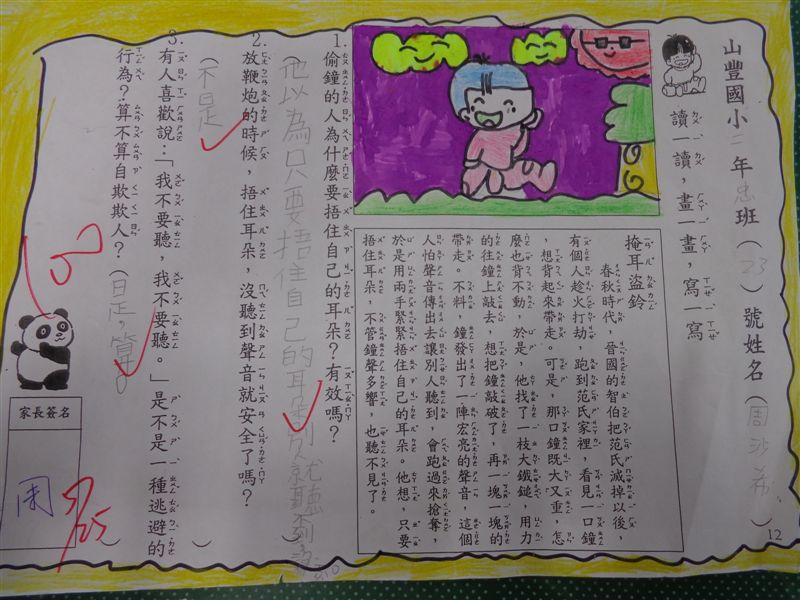 山豐國小二年忠班(23)號姓名(周沙希)
讀一讀，畫一畫，寫一寫
掩耳盜鈴
春秋時代，晉國的智伯把范氏滅掉以後，
有個人趁火打劫，跑到范氏家裡，看見一口鐘
，想背起來帶走。可是，那口鐘既大又重，怎
麼也背不動，於是，他找了一枝大鐵鎚，用力
的往鐘上敲去，想把鐘敲破了，再一塊一塊的
帶走。不料，鐘發出了一陣宏亮的聲音，這個
人怕聲音傳出去讓別人聽到，會跑過來搶奪，
於是用兩手緊緊捂住自己的耳朵。他想，只要
捂住耳朵，不管鐘聲多響，也聽不見了。
1.偷鐘的人為什麼要捂住自己的耳朵？有效嗎？
(他以為只要捂住自己的耳朵別人就聽
2.放鞭炮的時候，捂住耳朵，沒聽到聲音就安全了嗎？
(不是
3.有人喜歡說：「我不要聽，我不要聽。」是不是一種逃避的
行為？算不算自欺欺人？(是，算。
100
家長簽名
周
5/25
12